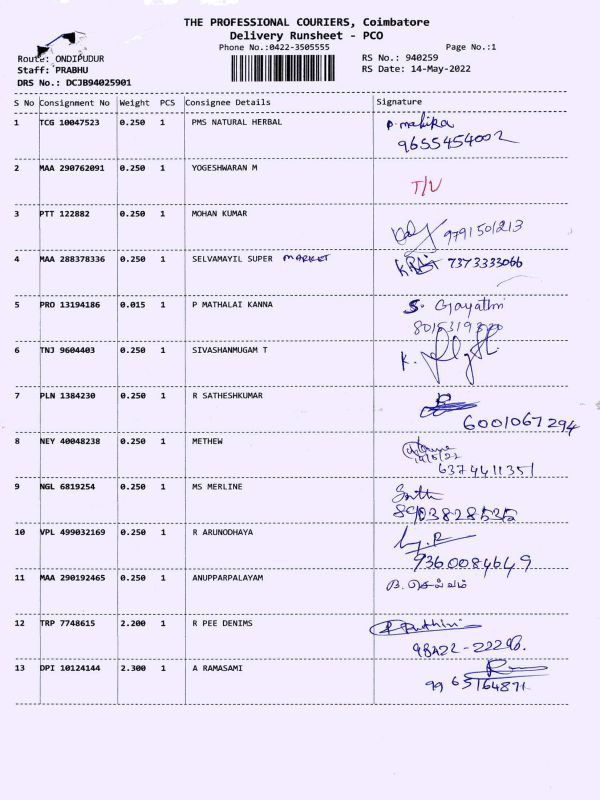 THE PROFESSIONAL COURIERS, Coimbatore
Delivery Runsheet - PCO
Phone No.:0422-3505555
Page No.:1
Route: ONDIPUDUR
RS No.: 940259
Staff: PRABHU
RS Date: 14-May-2022
DRS No.: DCJB94025901
S No Consignment No Weight PCS Consignee Details Signature
1 TCG 10047523 0.250 1 PMS NATURAL HERBAL P. mallika
9655454002
2 MAA 290762091 0.250 1 YOGESHWARAN M
T/V
3 PTT 122882 0.250 1 MOHAN KUMAR
9791501213
4 MAA 288378336 0.250 1 SELVAMAYIL SUPER MARKET 7373333066
5 PRO 13194186 0.015 1 P MATHALAI KANNA S. Gayathri
6 TNJ 9604403 0.250 1 SIVASHANMUGAM T K.
7 PLN 1384230 0.250 1 R SATHESHKUMAR
6001067294
8 NEY 40048238 0.250 1 METHEW
14/5/22
6374411351
9 NGL 6819254 0.250 1 MS MERLINE
8903828535
10 VPL 499032169 0.250 1 R ARUNODHAYA
9360084649
11 MAA 290192465 0.250 1 ANUPPARPALAYAM
12 TRP 7748615 2.200 1 R PEE DENIMS
98422-22296.
13 DPI 10124144 2.300 1 A RAMASAMI
9965164871